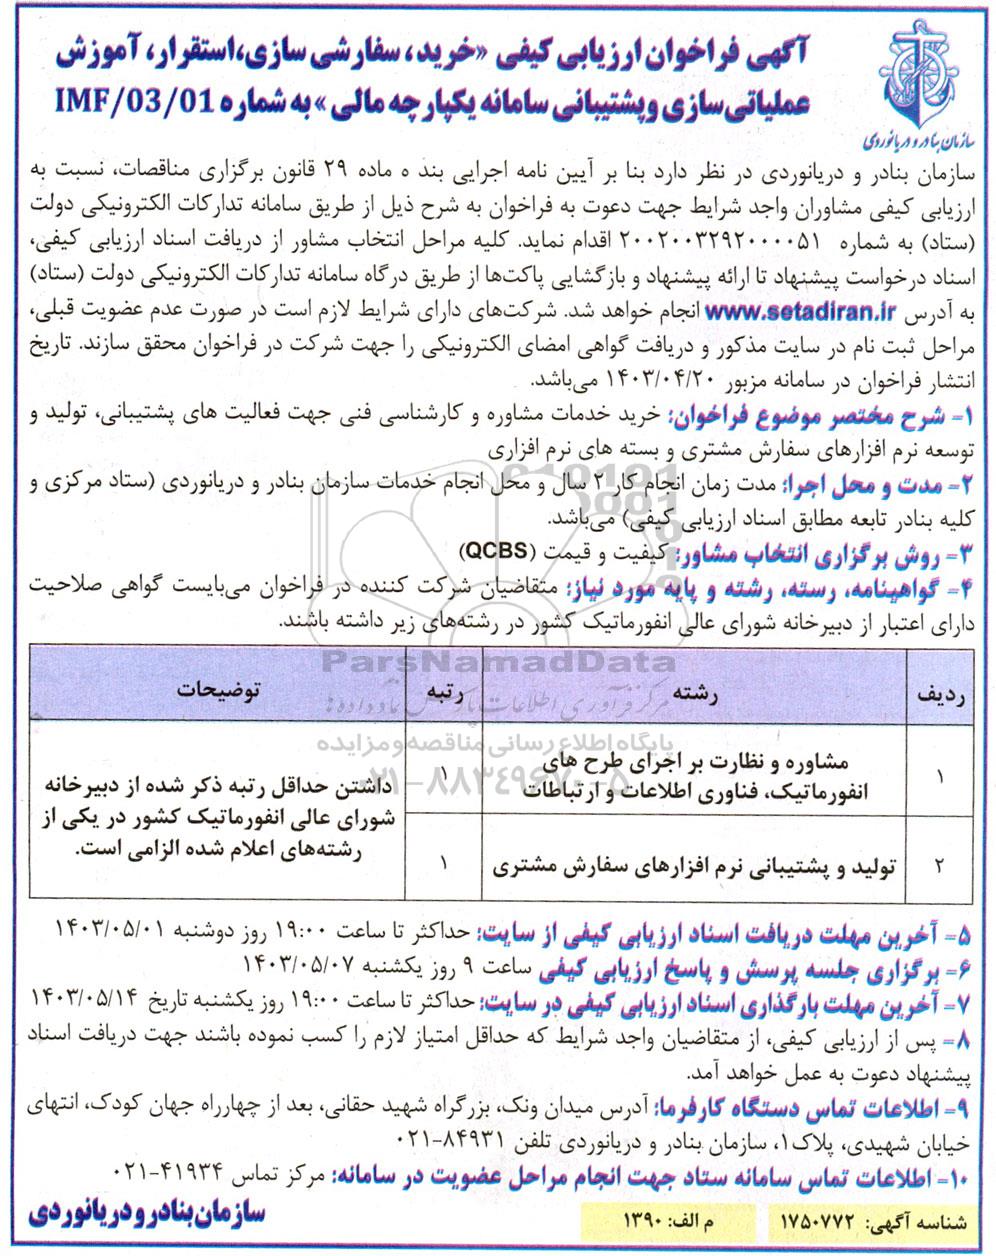 آگهی فراخوان ارزیابی کیفی «خرید، سفارشی سازی، استقرار، آموزش
عملیاتی سازی و پشتیبانی سامانه یکپارچه مالی» به شماره IMF/03/01
سازمان بنادر و دریانوردی
سازمان بنادر و دریانوردی در نظر دارد بنا بر آیین نامه اجرایی بند ه ماده ۲۹ قانون برگزاری مناقصات، نسبت به
ارزیابی کیفی مشاوران واجد شرایط جهت دعوت به فراخوان به شرح ذیل از طریق سامانه تدارکات الکترونیکی دولت
(ستاد) به شماره ۲۰۰۲۰۰۳۲۹۲۰۰۰۰۵۱ اقدام نماید. کلیه مراحل انتخاب مشاور از دریافت اسناد ارزیابی کیفی،
اسناد درخواست پیشنهاد تا ارائه پیشنهاد و بازگشایی پاکت‌ها از طریق درگاه سامانه تدارکات الکترونیکی دولت (ستاد)
به آدرس www.setadiran.ir انجام خواهد شد. شرکت‌های دارای شرایط لازم است در صورت عدم عضویت قبلی،
مراحل ثبت نام در سایت مذکور و دریافت گواهی امضای الکترونیکی را جهت شرکت در فراخوان محقق سازند. تاریخ
انتشار فراخوان در سامانه مزبور ۱۴۰۳/۰۴/۲۰ می‌باشد.
۱- شرح مختصر موضوع فراخوان: خرید خدمات مشاوره و کارشناسی فنی جهت فعالیت های پشتیبانی، تولید و
توسعه نرم افزارهای سفارش مشتری و بسته های نرم افزاری
۲- مدت و محل اجرا: مدت زمان انجام کار ۲ سال و محل انجام خدمات سازمان بنادر و دریانوردی (ستاد مرکزی و
کلیه بنادر تابعه مطابق اسناد ارزیابی کیفی) می‌باشد.
۳- روش برگزاری انتخاب مشاور: کیفیت و قیمت (QCBS)
۴- گواهینامه، رسته، رشته و پایه مورد نیاز: متقاضیان شرکت کننده در فراخوان می‌بایست گواهی صلاحیت
دارای اعتبار از دبیرخانه شورای عالی انفورماتیک کشور در رشته‌های زیر داشته باشند.
ParsNamadData
ردیف رشته رتبه توضیحات
مرکز فرآوری اطلاعات پارس نماد داده ها
پایگاه اطلاع رسانی مناقصه و مزایده
۰۲۱-۸۸۳۴۹۶۷۰-۵
۱ مشاوره و نظارت بر اجرای طرح های
انفورماتیک، فناوری اطلاعات و ارتباطات ۱
۲ تولید و پشتیبانی نرم افزارهای سفارش مشتری ۱
داشتن حداقل رتبه ذکر شده از دبیرخانه
شورای عالی انفورماتیک کشور در یکی از
رشته‌های اعلام شده الزامی است.
۵- آخرین مهلت دریافت اسناد ارزیابی کیفی از سایت: حداکثر تا ساعت ۱۹:۰۰ روز دوشنبه ۱۴۰۳/۰۵/۰۱
۶- برگزاری جلسه پرسش و پاسخ ارزیابی کیفی ساعت ۹ روز یکشنبه ۱۴۰۳/۰۵/۰۷
۷- آخرین مهلت بارگذاری اسناد ارزیابی کیفی در سایت: حداکثر تا ساعت ۱۹:۰۰ روز یکشنبه تاریخ ۱۴۰۳/۰۵/۱۴
۸- پس از ارزیابی کیفی، از متقاضیان واجد شرایط که حداقل امتیاز لازم را کسب نموده باشند جهت دریافت اسناد
پیشنهاد دعوت به عمل خواهد آمد.
۹- اطلاعات تماس دستگاه کارفرما: آدرس میدان ونک، بزرگراه شهید حقانی، بعد از چهارراه جهان کودک، انتهای
خیابان شهیدی، پلاک۱، سازمان بنادر و دریانوردی تلفن ۸۴۹۳۱-۰۲۱
۱۰- اطلاعات تماس سامانه ستاد جهت انجام مراحل عضویت در سامانه: مرکز تماس ۴۱۹۳۴-۰۲۱
شناسه آگهی: ۱۷۵۰۷۷۲ م الف: ۱۳۹۰ سازمان بنادر و دریانوردی